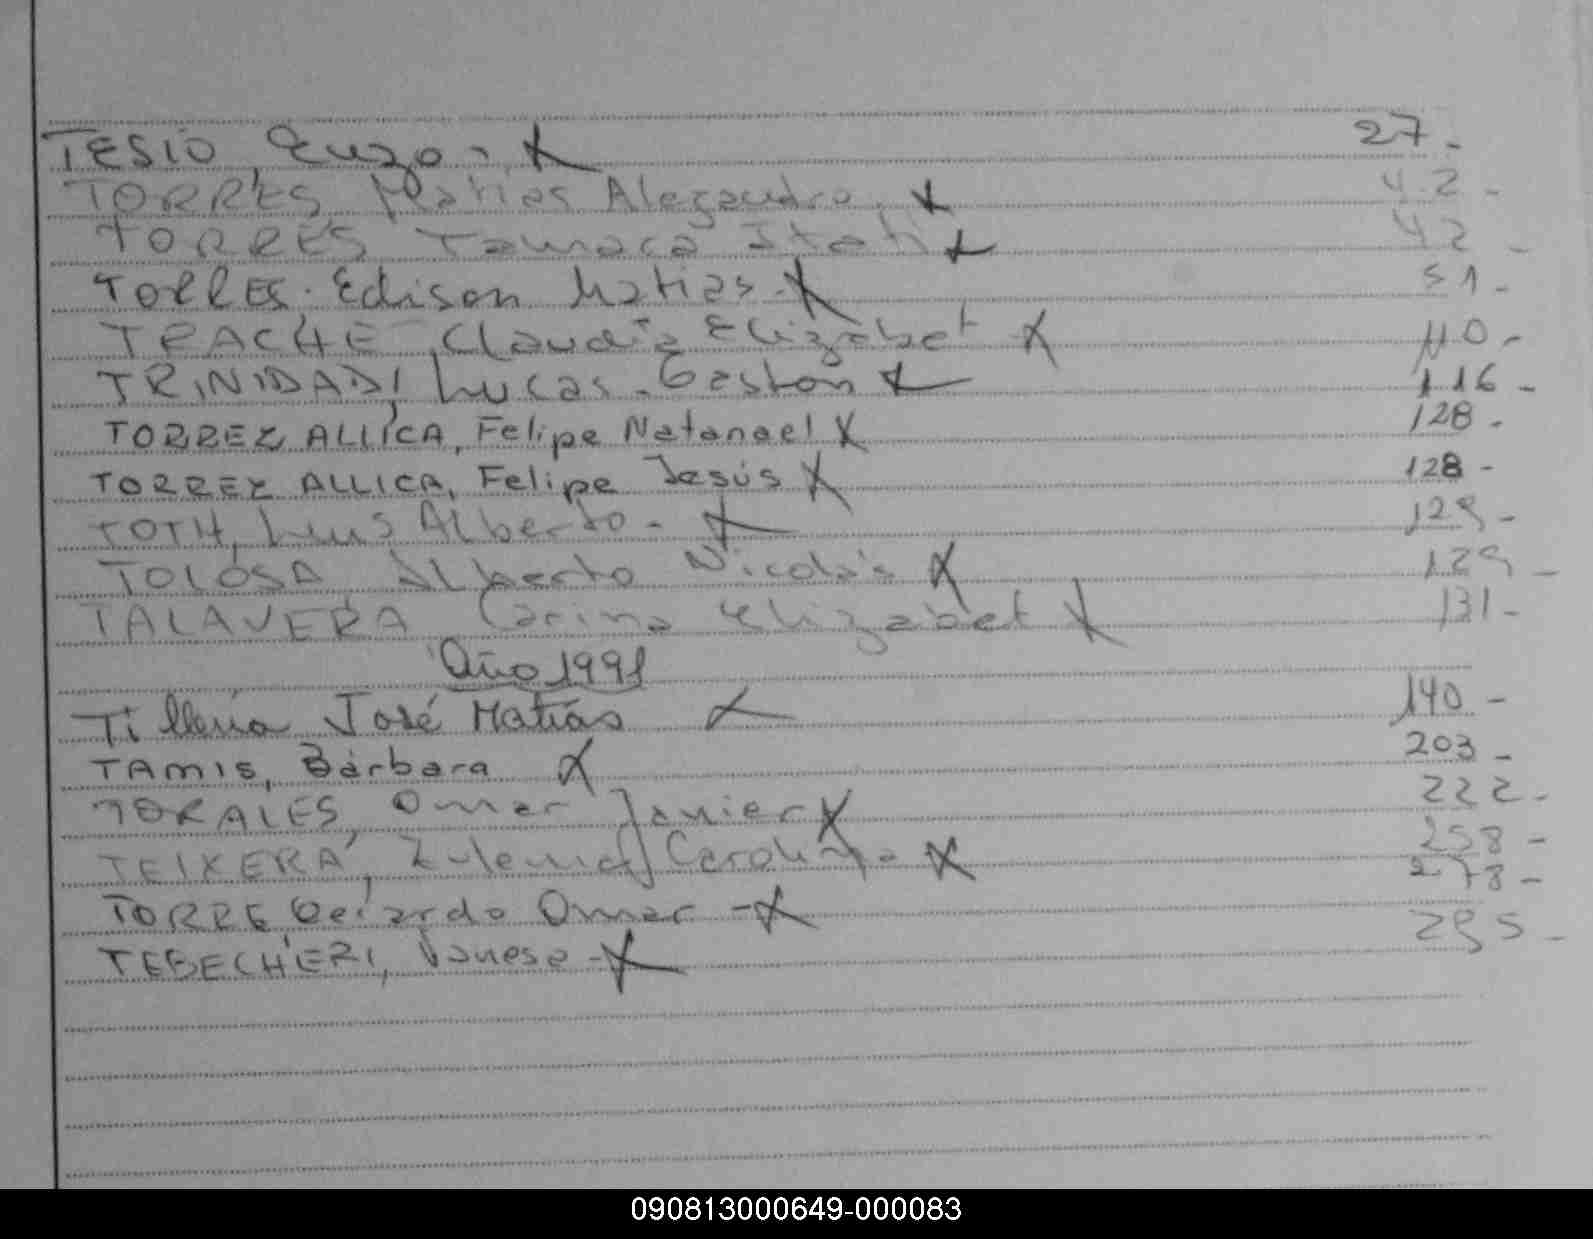 TESIO, Enzo - X 27 -
TORRES, Matias Alejandro. X 42 -
TORRES Tamara Itati X 42 -
TORRES. Edison Matias - X 51 -
TRACHE, Claudia Elizabet X 110 -
TRINIDAD, Lucas - Gaston X 116 -
TORREZ ALLICA, Felipe Natanael X 128 -
TORREZ ALLICA, Felipe Jesús X 128 -
TOTH, Luis Alberto - X 129 -
TOLOSA Alberto Nicolás X 129 -
TALAVERA Carina Elizabet X 131 -
Año 1991
Tilleria José Matías X 140 -
TAMIS, Bárbara X 203 -
TORALES, Omar Javier X 222 -
TEIXERA, Zulema Carolina X 258 -
TORRE Gerardo Omar - X 278 -
TEBECHERI, Vanesa - X 295 -
090813000649-000083